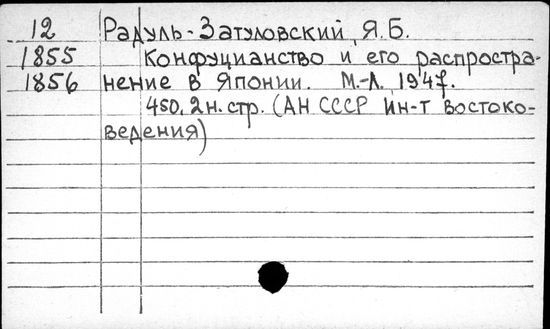 12 Радуль-Затуловский, Я.Б.
1855 Конфуцианство и его распростра-
1856 нение в Японии. М.-Л. 1947.
450, 2н. стр. (АН СССР Ин-т востоко-
ведения)